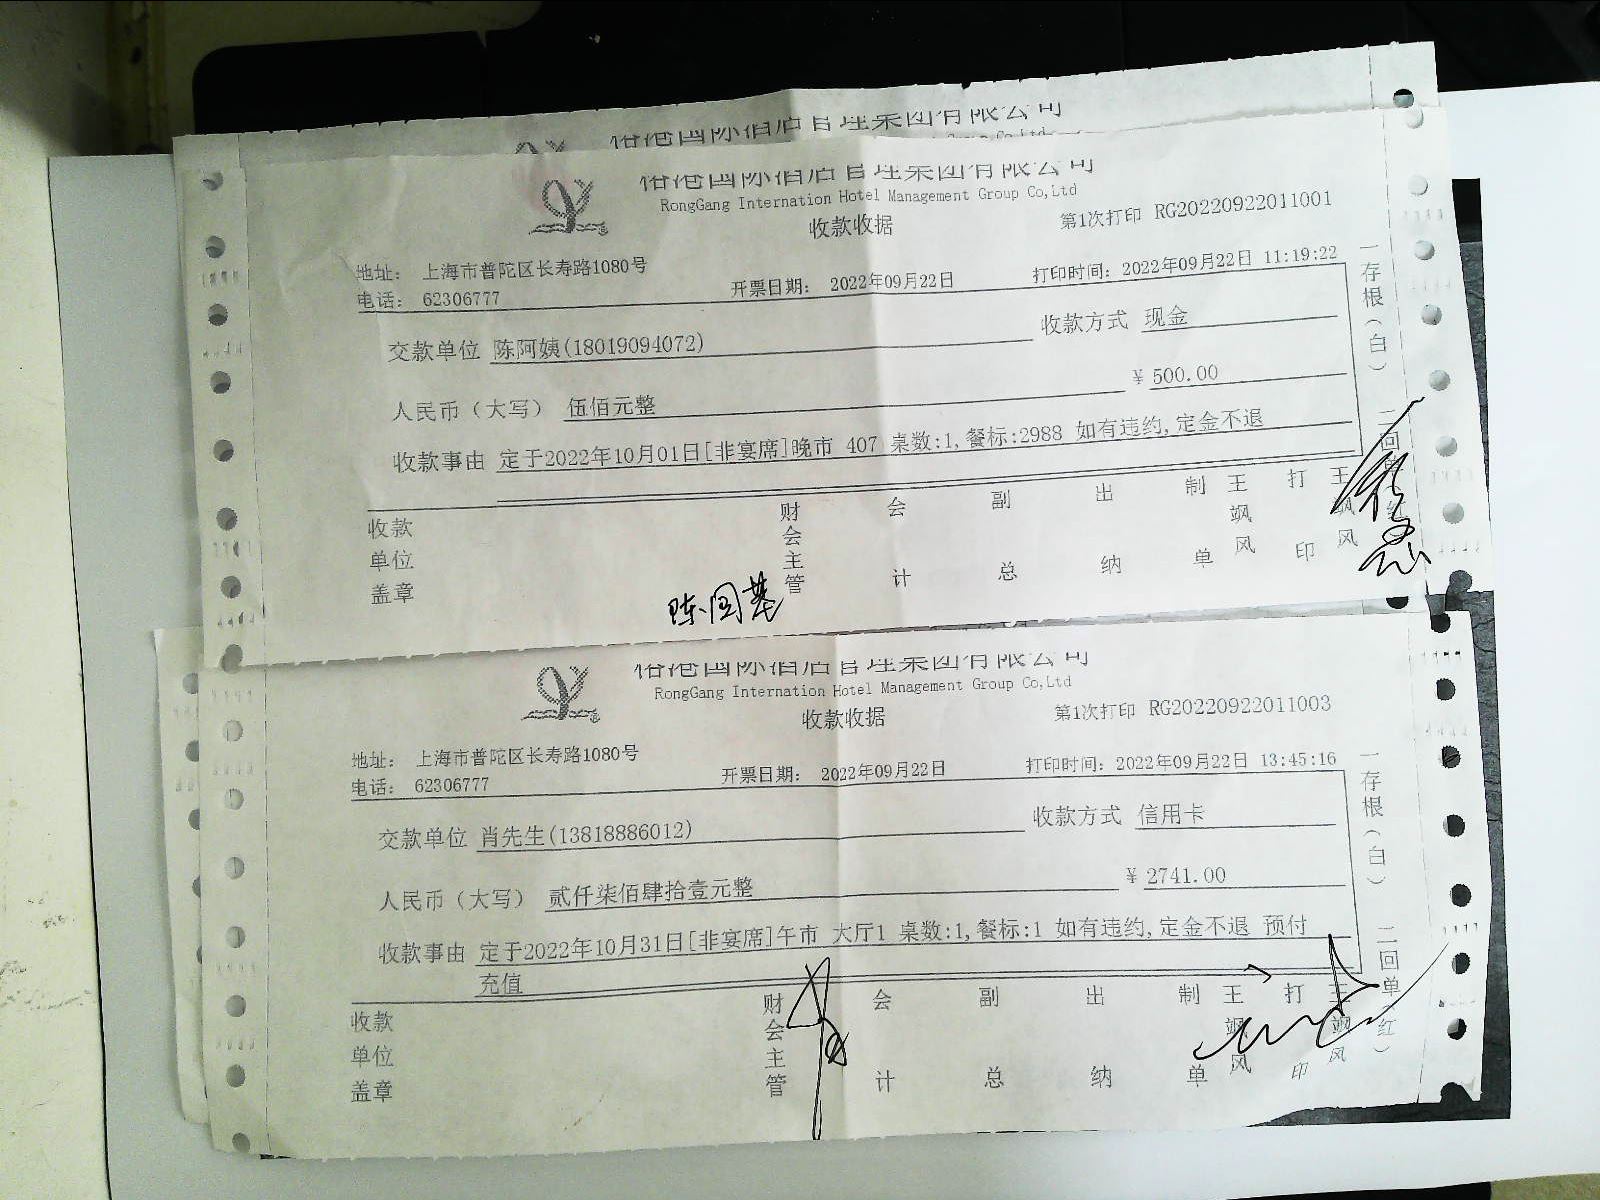 国际酒店管理集团有限公司
国际酒店管理集团有限公司
RongGang Internation Hotel Management Group Co,Ltd
收款收据
第1次打印 RG20220922011001
地址： 上海市普陀区长寿路1080号
电话： 62306777
开票日期： 2022年09月22日
打印时间：2022年09月22日 11:19:22
交款单位 陈阿姨(18019094072)
收款方式 现金
人民币（大写） 伍佰元整
￥500.00
收款事由 定于2022年10月01日[非宴席]晚市 407 桌数:1,餐标:2988 如有违约,定金不退
收款单位盖章
财会主管
会计
副总
出纳
制单
王飒风
打印
王飒风
一存根（白）
二回单（红
陈国基
港国际酒店管理集团有限公司
RongGang Internation Hotel Management Group Co,Ltd
收款收据
第1次打印 RG20220922011003
地址： 上海市普陀区长寿路1080号
电话： 62306777
开票日期： 2022年09月22日
打印时间：2022年09月22日 13:45:16
交款单位 肖先生(13818886012)
收款方式 信用卡
人民币（大写） 贰仟柒佰肆拾壹元整
￥2741.00
收款事由 定于2022年10月31日[非宴席]午市 大厅1 桌数:1,餐标:1 如有违约,定金不退 预付
充值
收款单位盖章
财会主管
会计
副总
出纳
制单
王飒风
打印
王飒风
一存根（白）
二回单（红）